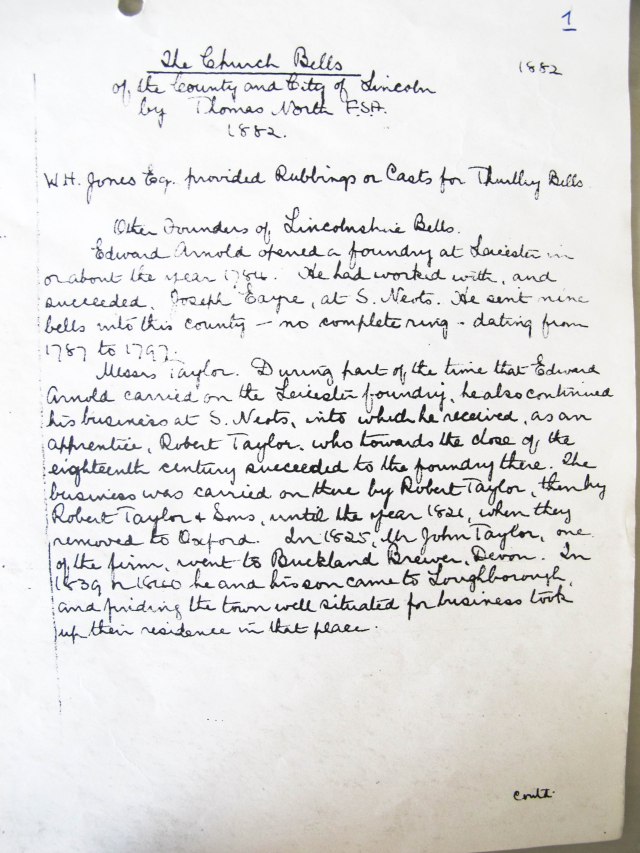 1
The Church Bells
1882
of the County and City of Lincoln
by Thomas North F.S.A.
1882.
W.H. Jones Esq. provided Rubbings or Casts for Thurlby Bells.
Other Founders of Lincolnshire Bells.
Edward Arnold opened a foundry at Leicester in
or about the year 1784. He had worked with, and
succeeded, Joseph Eayre, at S. Neots. He sent nine
bells into this county – no complete ring – dating from
1787 to 1797.
Messrs Taylor. During part of the time that Edward
Arnold carried on the Leicester foundry, he also continued
his business at S. Neots, into which he received, as an
apprentice, Robert Taylor, who towards the close of the
eighteenth century succeeded to the foundry there. The
business was carried on there by Robert Taylor, then by
Robert Taylor & Sons, until the year 1821, when they
removed to Oxford. In 1825, Mr John Taylor, one
of the firm, went to Buckland Brewer, Devon. In
1839 or 1840 he and his son came to Loughborough,
and finding the town well situated for business took
up their residence in that place.
Contd.